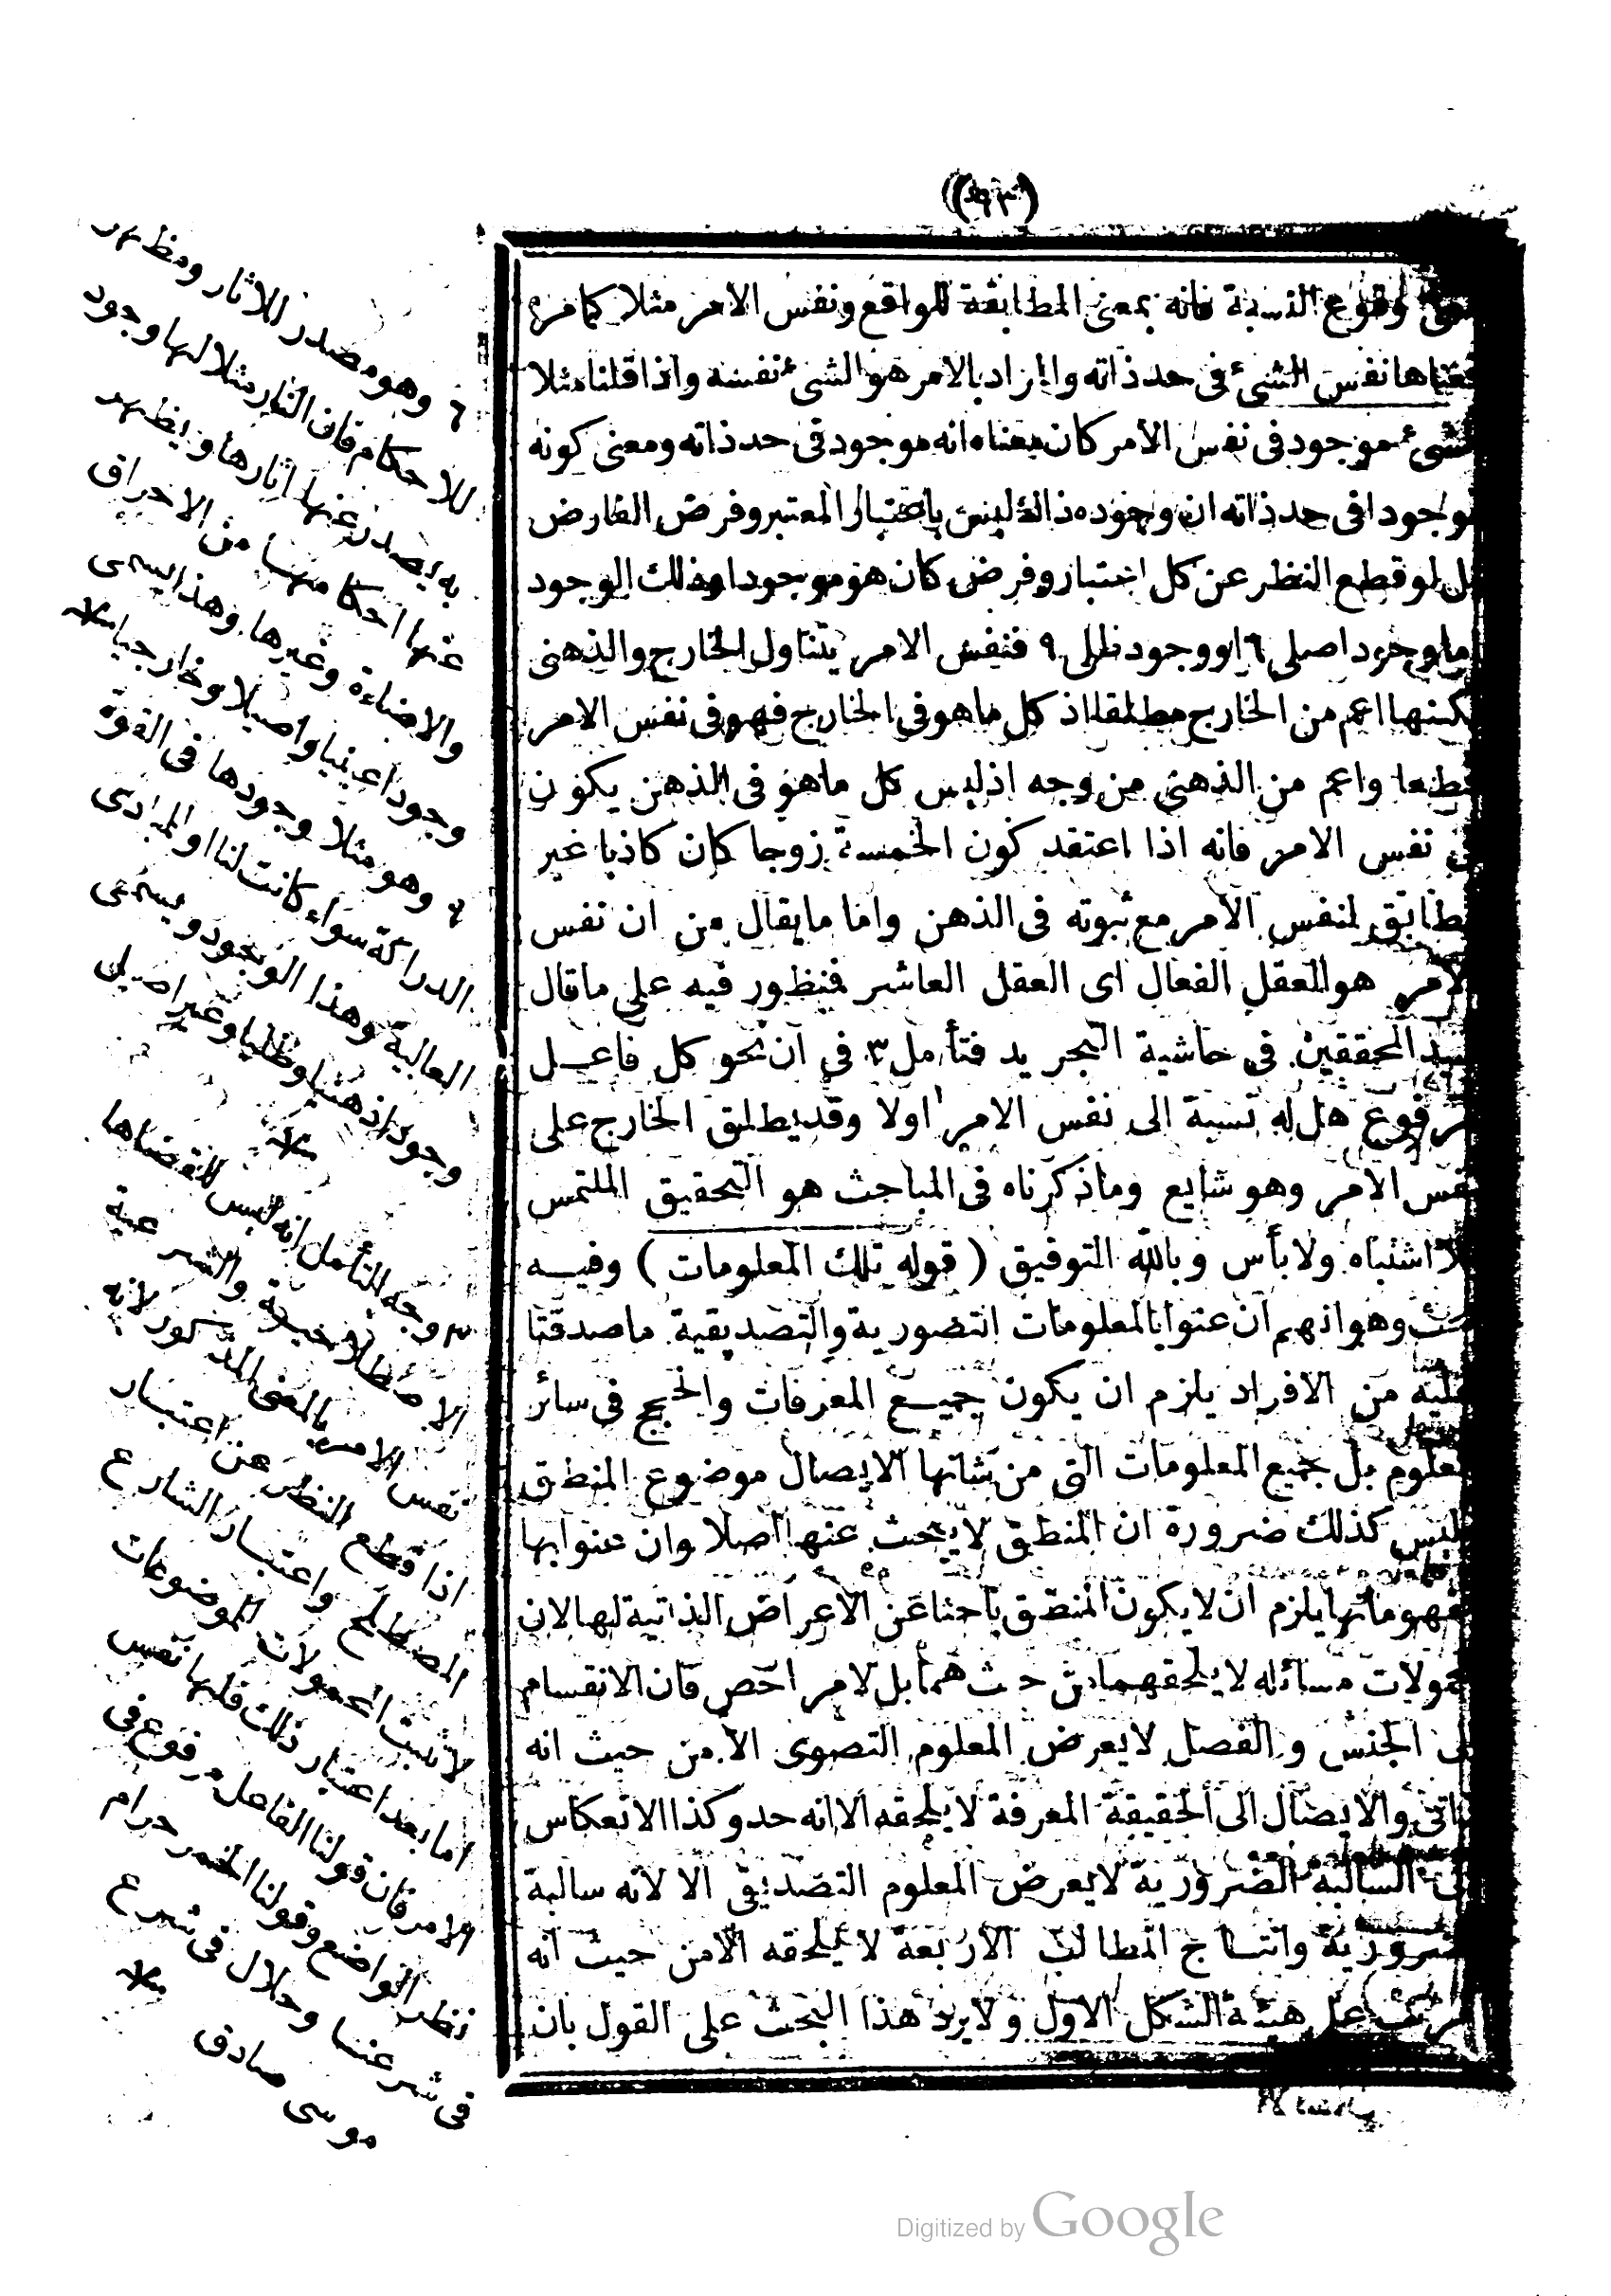 (٩٣)
وقوع النسبة فانه بمعنى المطابقة للواقع ونفس الامر مثلا كما مره
فمعناها نفس الشئ في حد ذاته والمراد بالامر هو الشئ نفسه واذا قلنا مثلا
الشئ موجود في نفس الامر كان معناه انه موجود في حد ذاته ومعنى كونه
موجودا في حد ذاته ان وجوده ذالك ليس باعتبار المعتبر وفرض الفارض
بل لو قطع النظر عن كل اعتبار وفرض كان هو موجودا وذلك الوجود
اما وجود اصلى ٦ او وجود ظلى ٩ فنفس الامر يتناول الخارج والذهنى
لكنها اعم من الخارج مطلقا اذ كل ما هو في الخارج فهو في نفس الامر
قطعا واعم من الذهنى من وجه اذ ليس كل ما هو في الذهن يكون
في نفس الامر فانه اذا اعتقد كون الخمسة زوجا كان كاذبا غير
مطابق لنفس الامر مع ثبوته في الذهن واما ما يقال من ان نفس
الامر هو العقل الفعال اى العقل العاشر فنظور فيه على ما قال
سيد المحققين في حاشية التجريد فتأمل ٣ في ان نحو كل فاعل
مرفوع هل له نسبة الى نفس الامر اولا وقد يطلق الخارج على
نفس الامر وهو شايع وما ذكرناه في المباحث هو التحقيق الملتمس
بلا اشتباه ولا بأس وبالله التوفيق ( قوله تلك المعلومات ) وفيه
بحث وهو انهم ان عنوا بالمعلومات التصورية والتصديقية ما صدقتا
عليه من الافراد يلزم ان يكون جميع المعرفات والحجج في سائر
العلوم بل جميع المعلومات التى من شانها الايصال موضوع المنطق
وليس كذلك ضرورة ان المنطق لا يبحث عنها اصلا وان عنوا بها
مفهوماتها يلزم ان لا يكون المنطق باحثا عن الاعراض الذاتية لها لان
محمولات مسائله لا يلحقهما من حيث هما بل لامر اخص فان الانقسام
الى الجنس والفصل لا يعرض المعلوم التصوى الا من حيث انه
ذاتى والايصال الى الحقيقة المعرفة لا يلحقه الا انه حد وكذا الانعكاس
الى السالبة الضرورية لا يعرض المعلوم التصديقى الا لانه سالبة
ضرورية وانتاج المطالب الاربعة لا يلحقه الا من حيث انه
مرتب على هيئة الشكل الاول ولا يرد هذا البحث على القول بان
٦ وهو مصدر للاثار ومظهر
للاحكام فان النار مثلا لها وجود
به يصدر عنها اثارها ويظهر
عنها احكامها من الاحراق
والاضاءة وغيرها وهذا يسمى
وجودا عينيا واصيلا وخارجيا منه
٩ وهو مثلا وجودها في القوة
الدراكة سواء كانت لنا او للمبادى
العالية وهذا الوجود ويسمى
وجودا ذهنيا وظليا وغير اصيل
منه
٣ وجه التأمل انه ليس للقضاها
الاصطلاحية والشرعية
نفس الامر بالمعنى المذكور لانه
اذا قطع النظر عن اعتبار
المصطلح واعتبار الشارع
لا تثبت المحمولات للموضوعات
اما بعد اعتبار ذلك فلها نفس
الامر فان قولنا الفاعل مرفوع في
نظر الواضع وقولنا الخمر حرام
في شرعنا وحلال في شرع
موسى صادق منه
Digitized by Google